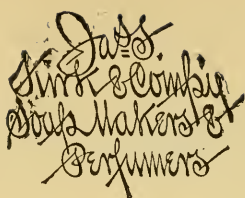 Jas. S.
Kirk & Comp'y
Soap Makers &
Perfumers